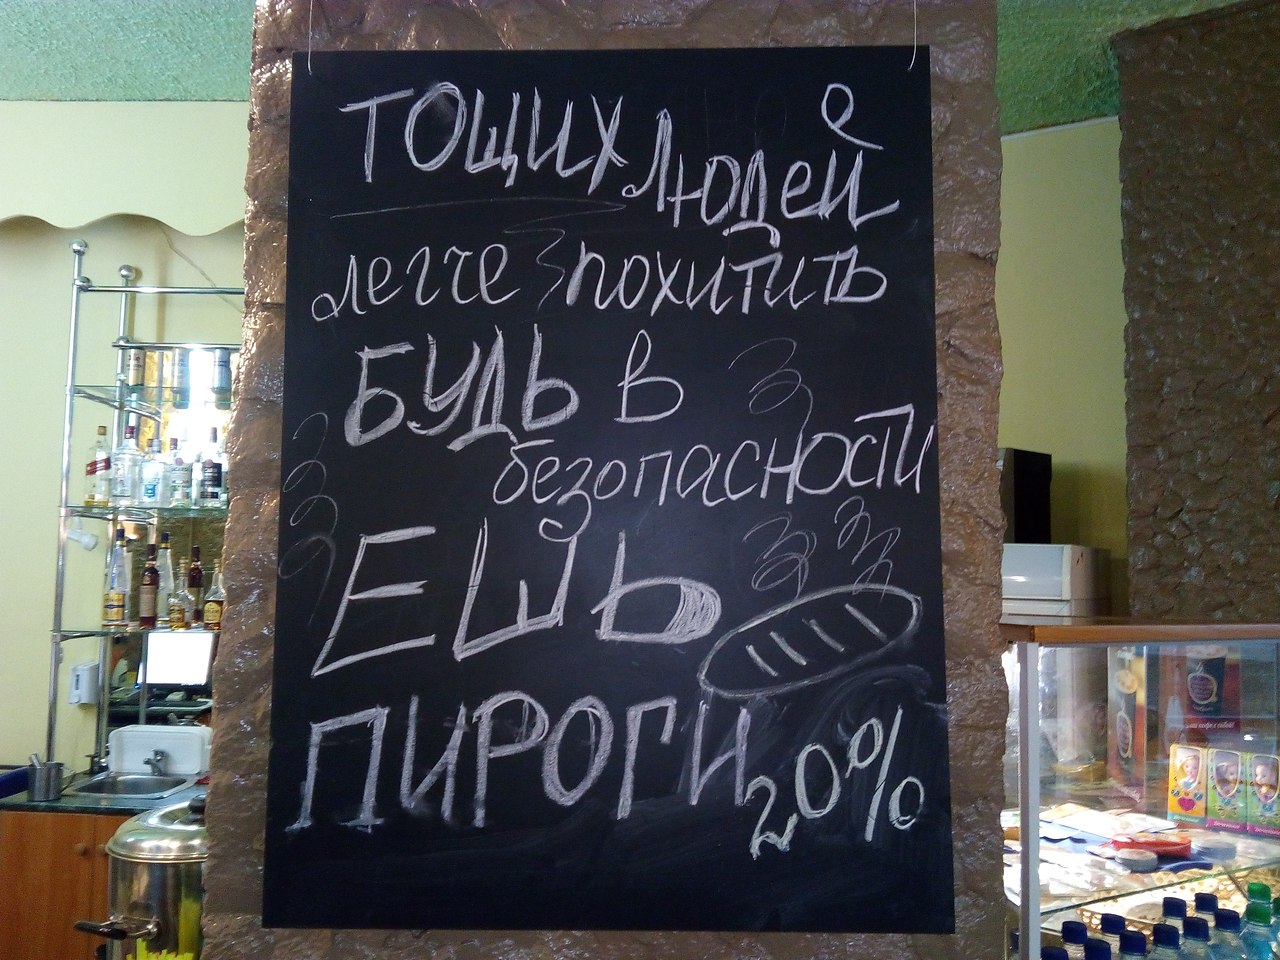 ТОЩИХ ЛЮДЕЙ
легче похитить
БУДЬ В
безопасности
ЕШЬ
ПИРОГИ
20%